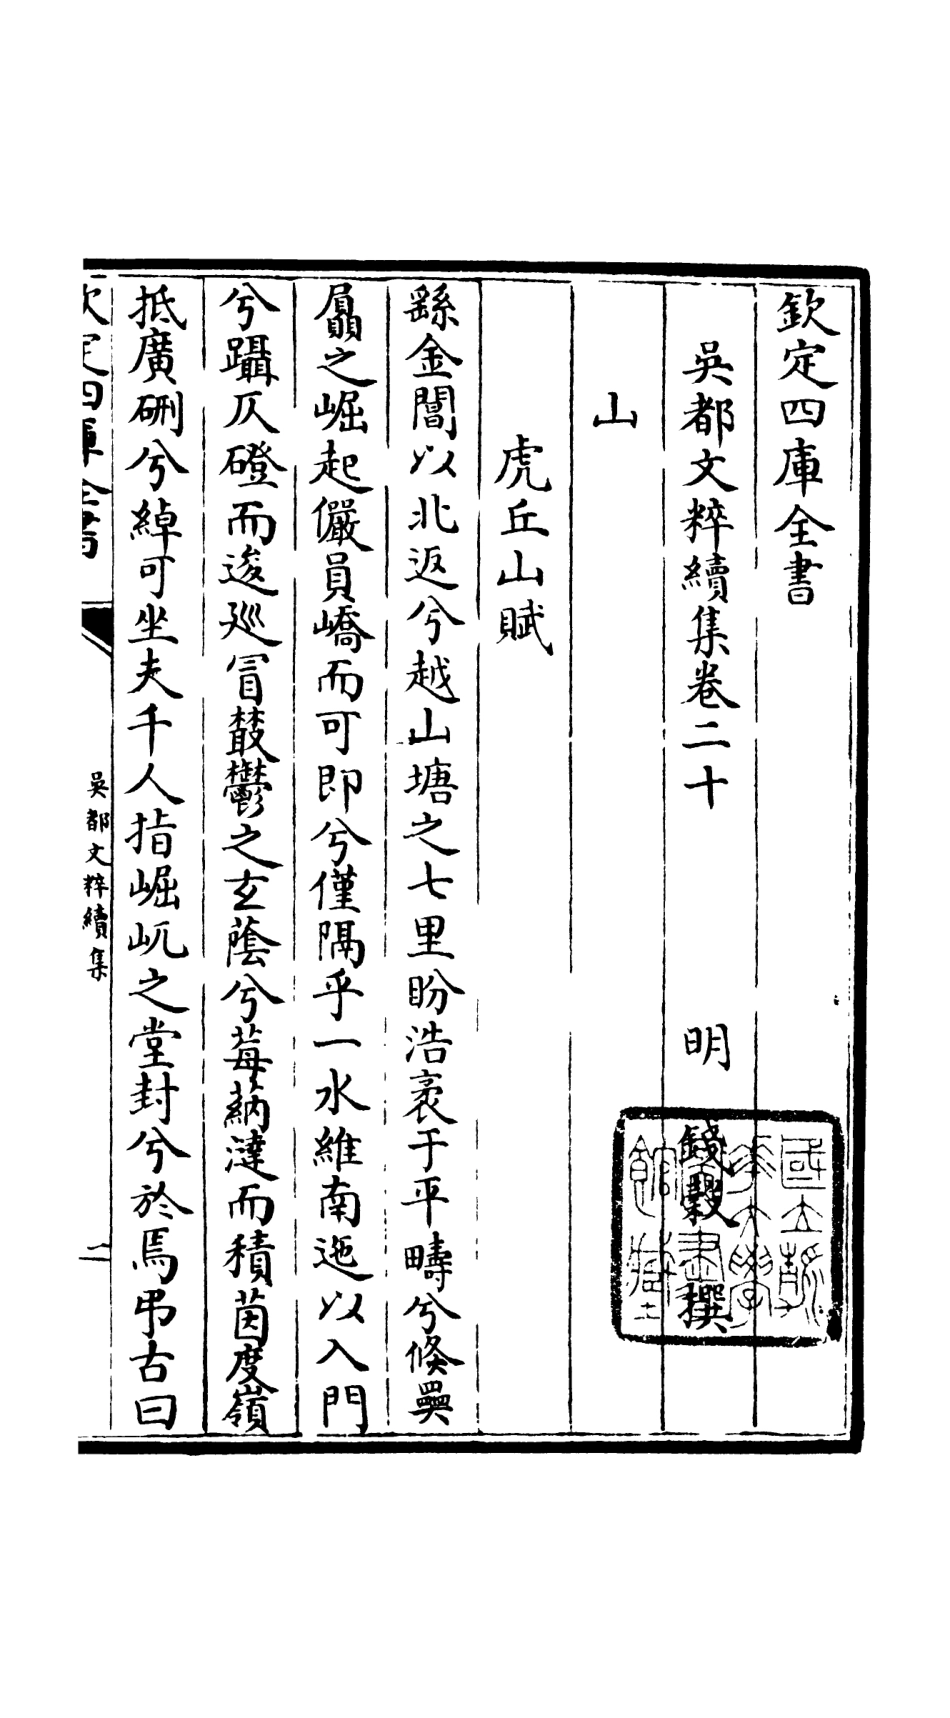 欽定四庫全書
吳都文粹續集卷二十
明 錢穀 撰
山
虎丘山賦
繇金閶以北返兮越山塘之七里盼浩袤于平疇兮倏
贔之崛起儼員嶠而可即兮僅隔乎一水維南迤以入門
兮躡仄磴而逡廵冒鬱之玄蔭兮莓澾而積茵度嶺
抵廣硎兮綽可坐夫千人指崛屼之堂封兮於焉弔古曰
欽定四庫全書
吳都文粹續集
國立清華大學圖書館藏